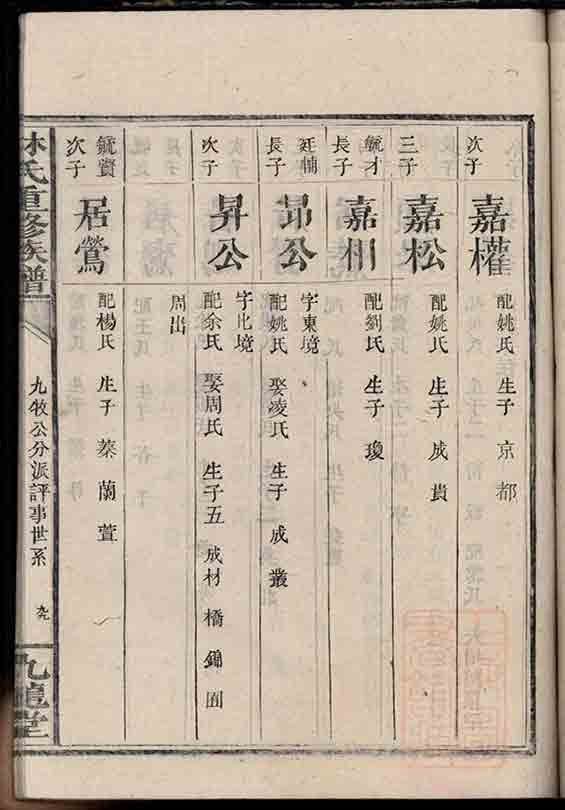 次子 嘉權 配姚氏 生子 京 都
三子 嘉松 配姚氏 生子 成 貴
毓才長子 嘉相 配劉氏 生子 瓊
字東境
廷輔長子 昻公 配姚氏 娶凌氏 生子 成 叢
字比境
次子 昇公 配余氏 娶周氏 生子五 成材 橋 錦 囿
周出
毓賢次子 居鶯 配楊氏 生子 蓁 蘭 萱
林氏重修族譜 九牧公分派評事世系 九龍堂